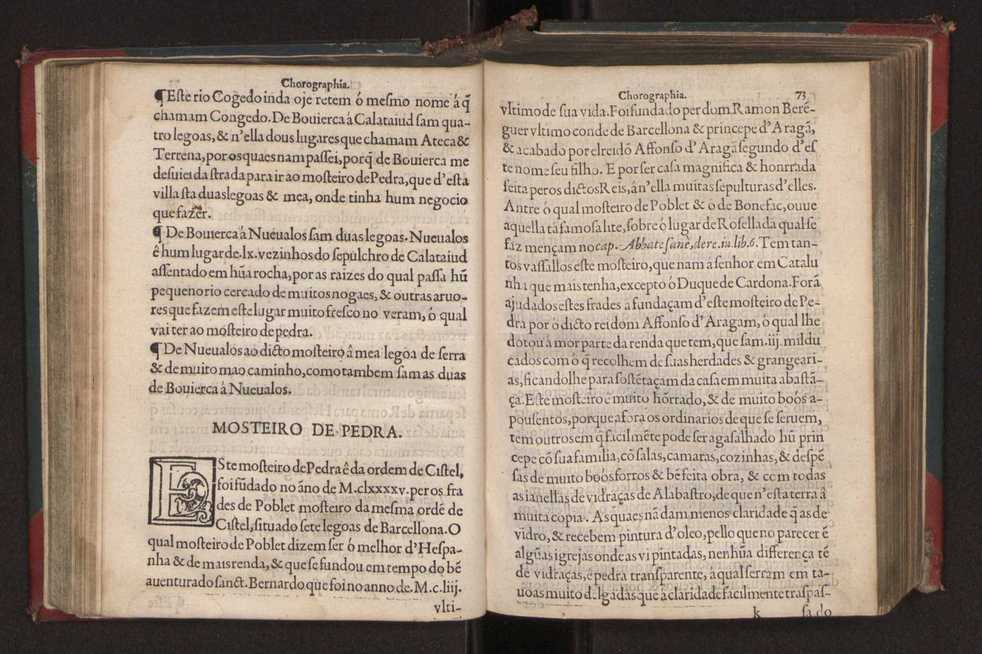 Chorographia.
¶Este rio Cogedo inda oje retem ó mesmo nome á q̃
chamam Congedo. De Bouierca â Calataiud sam qua-
tro legoas, & n'ella dous lugares que chamam Ateca &
Terrena, por os quaes nam passei, porq̃ de Bouierca me
desuiei da strada para ir ao mosteiro de Pedra, que d'esta
villa sta duas legoas & mea, onde tinha hum negocio
que fazer.
¶ De Bouierca â Nueualos sam duas legoas. Nueualos
ê hum lugar de .lx. vezinhos do sepulchro de Calataiud
assentado em hũa rocha, por as raizes do qual passa hũ
pequeno rio cercado de muitos nogaes, & outras aruo-
res que fazem este lugar muito fresco no veram, ó qual
vai ter ao mosteiro de pedra.
¶ De Nueualos ao dicto mosteiro â mea legoa de serra
& de muito mao caminho, como tambem sam as duas
de Bouierca â Nueualos.
MOSTEIRO DE PEDRA.
ESte mosteiro de Pedra ê da ordem de Cistel,
foi fũdado no ãno de M.clxxxxv. per os fra
des de Poblet mosteiro da mesma ordẽ de
Cistel, situado sete legoas de Barcellona. O
qual mosteiro de Poblet dizem ser ó melhor d'Hespa-
nha & de mais renda, & que se fundou em tempo do bẽ
auenturado sanct. Bernardo que foi no anno de .M.c.liij.
vlti-
Chorographia. 73
vltimo de sua vida. Foi fundado per dom Ramon Berẽ-
guer vltimo conde de Barcellona & principe d'Aragã,
& acabado por elrei dõ Affonso d'Aragã segundo d'es
te nome seu filho. E por ser casa magnifica & honrrada
feita per os dictos Reis, â n'ella muitas sepulturas d'elles.
Antre ó qual mosteiro de Poblet & o de Bonefac, ouue
aquella tã famosa lite, sobre ó lugar de Rosellada qual se
faz mençam no cap. Abbate sane, de re. iu. lib. 6. Tem tan-
tos vassallos este mosteiro, que nam â senhor em Catalu
nha que mais tenha, excepto ó Duque de Cardona. Forã
ajudados estes frades â fundaçam d'este mosteiro de Pe-
dra por ó dicto rei dom Affonso d'Aragam, ó qual lhe
dotou â mor parte da renda que tem, que sam .iij. mil du
cados com ó q̃ recolhem de suas herdades & grangeari-
as, ficandolhe para sostẽtaçam da casa em muita abastã-
ça. Este mosteiro ê muito hõrrado, & de muito boõs a-
pousentos, porque afora os ordinarios de que se seruem,
tem outros em q̃ facilmẽte pode ser agasalhado hũ prin
cepe cõ sua familia, cõ salas, camaras, cozinhas, & despẽ
sas de muito boõs forros & bẽ feita obra, & com todas
as ianellas de vidraças de Alabastro, de que n'esta terra â
muita copia. As quaes nã dam menos claridade q̃ as de
vidro, & recebem pintura d'oleo, pello que no parecer ẽ
algũas igrejas onde as vi pintadas, nenhũa differença tẽ
de vidraças, ê pedra transparente, â qual serram em ta-
uoas muito delgadas que â claridade facilmente traspas-
k sa. do